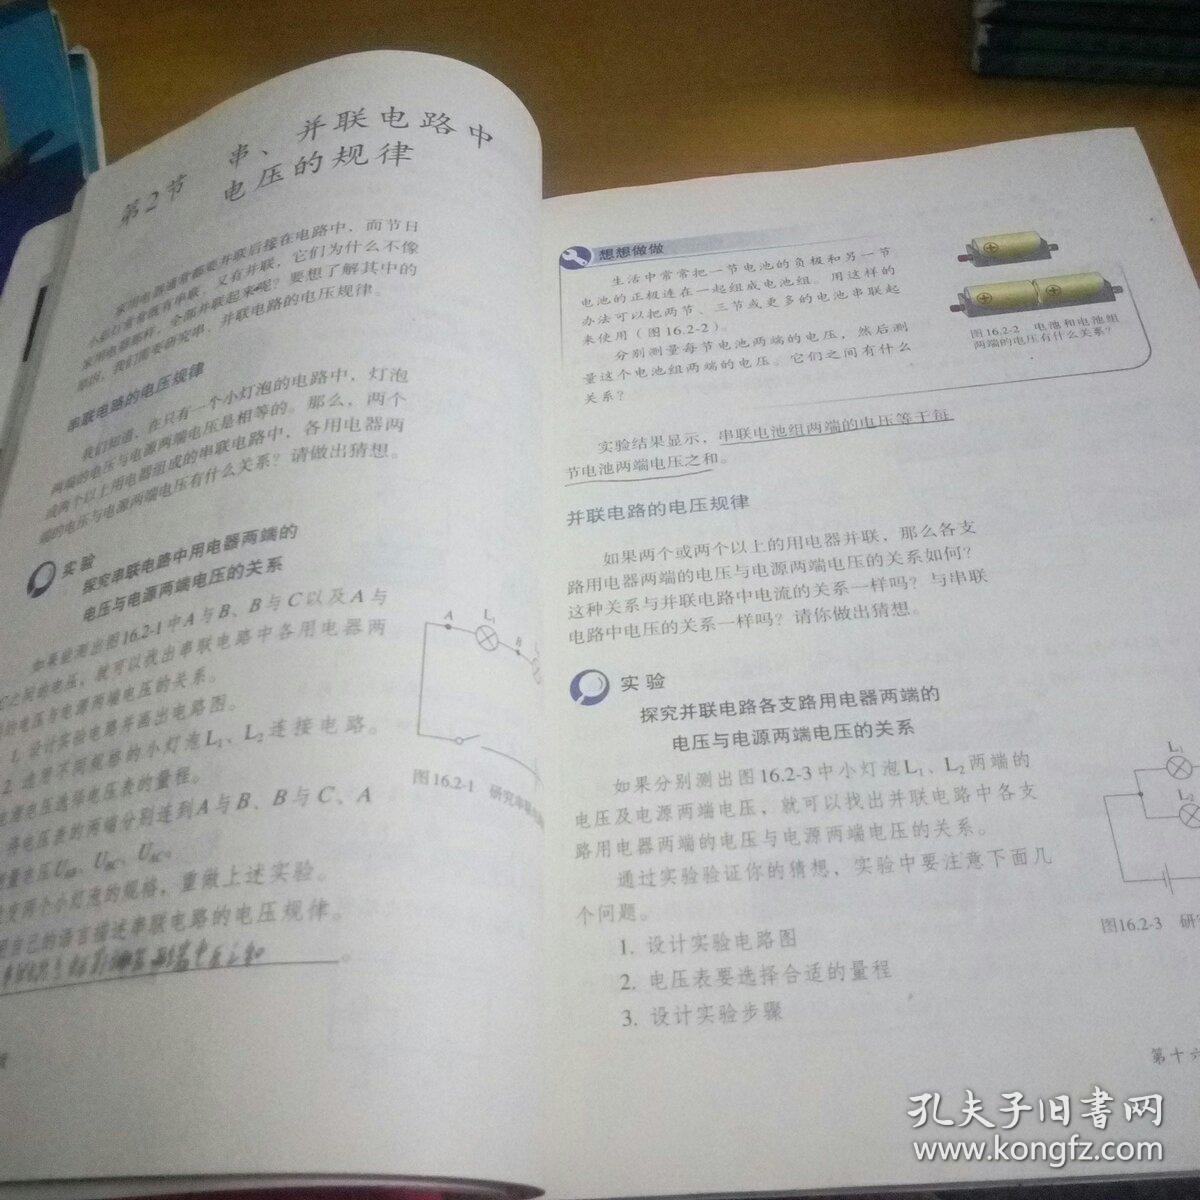 第2节
串、并联电路中
电压的规律
家用电器通常都要并联后接在电路中，而节日
小彩灯常常既有串联，又有并联，它们为什么不像
家用电器那样，全部并联起来呢？要想了解其中的
原因，我们需要研究串、并联电路的电压规律。
串联电路的电压规律
我们知道，在只有一个小灯泡的电路中，灯泡
两端的电压与电源两端电压是相等的。那么，两个
或两个以上用电器组成的串联电路中，各用电器两
端的电压与电源两端电压有什么关系？请做出猜想。
实验
探究串联电路中用电器两端的
电压与电源两端电压的关系
如果能测出图16.2-1中A与B、B与C以及A与
C之间的电压，就可以找出串联电路中各用电器两
的电压与电源两端电压的关系。
1. 设计实验电路并画出电路图。
2. 选用不同规格的小灯泡L1、L2连接电路。
电源电压选择电压表的量程。
将电压表的两端分别连到A与B、B与C、A
测量电压UAB、UBC、UAC。
改变两个小灯泡的规格，重做上述实验。
用自己的语言描述串联电路的电压规律。
A
L1
B
图16.2-1 研究串联
想想做做
生活中常常把一节电池的负极和另一节
电池的正极连在一起组成电池组。用这样的
办法可以把两节、三节或更多的电池串联起
来使用（图16.2-2）。
分别测量每节电池两端的电压，然后测
量这个电池组两端的电压。它们之间有什么
关系？
图16.2-2 电池和电池组
两端的电压有什么关系？
实验结果显示，串联电池组两端的电压等于每
节电池两端电压之和。
并联电路的电压规律
如果两个或两个以上的用电器并联，那么各支
路用电器两端的电压与电源两端电压的关系如何？
这种关系与并联电路中电流的关系一样吗？与串联
电路中电压的关系一样吗？请你做出猜想。
实验
探究并联电路各支路用电器两端的
电压与电源两端电压的关系
如果分别测出图16.2-3中小灯泡L1、L2两端的
电压及电源两端电压，就可以找出并联电路中各支
路用电器两端的电压与电源两端电压的关系。
通过实验验证你的猜想，实验中要注意下面几
个问题。
1. 设计实验电路图
2. 电压表要选择合适的量程
3. 设计实验步骤
L1
L2
图16.2-3 研
第十六
孔夫子旧书网
www.kongfz.com